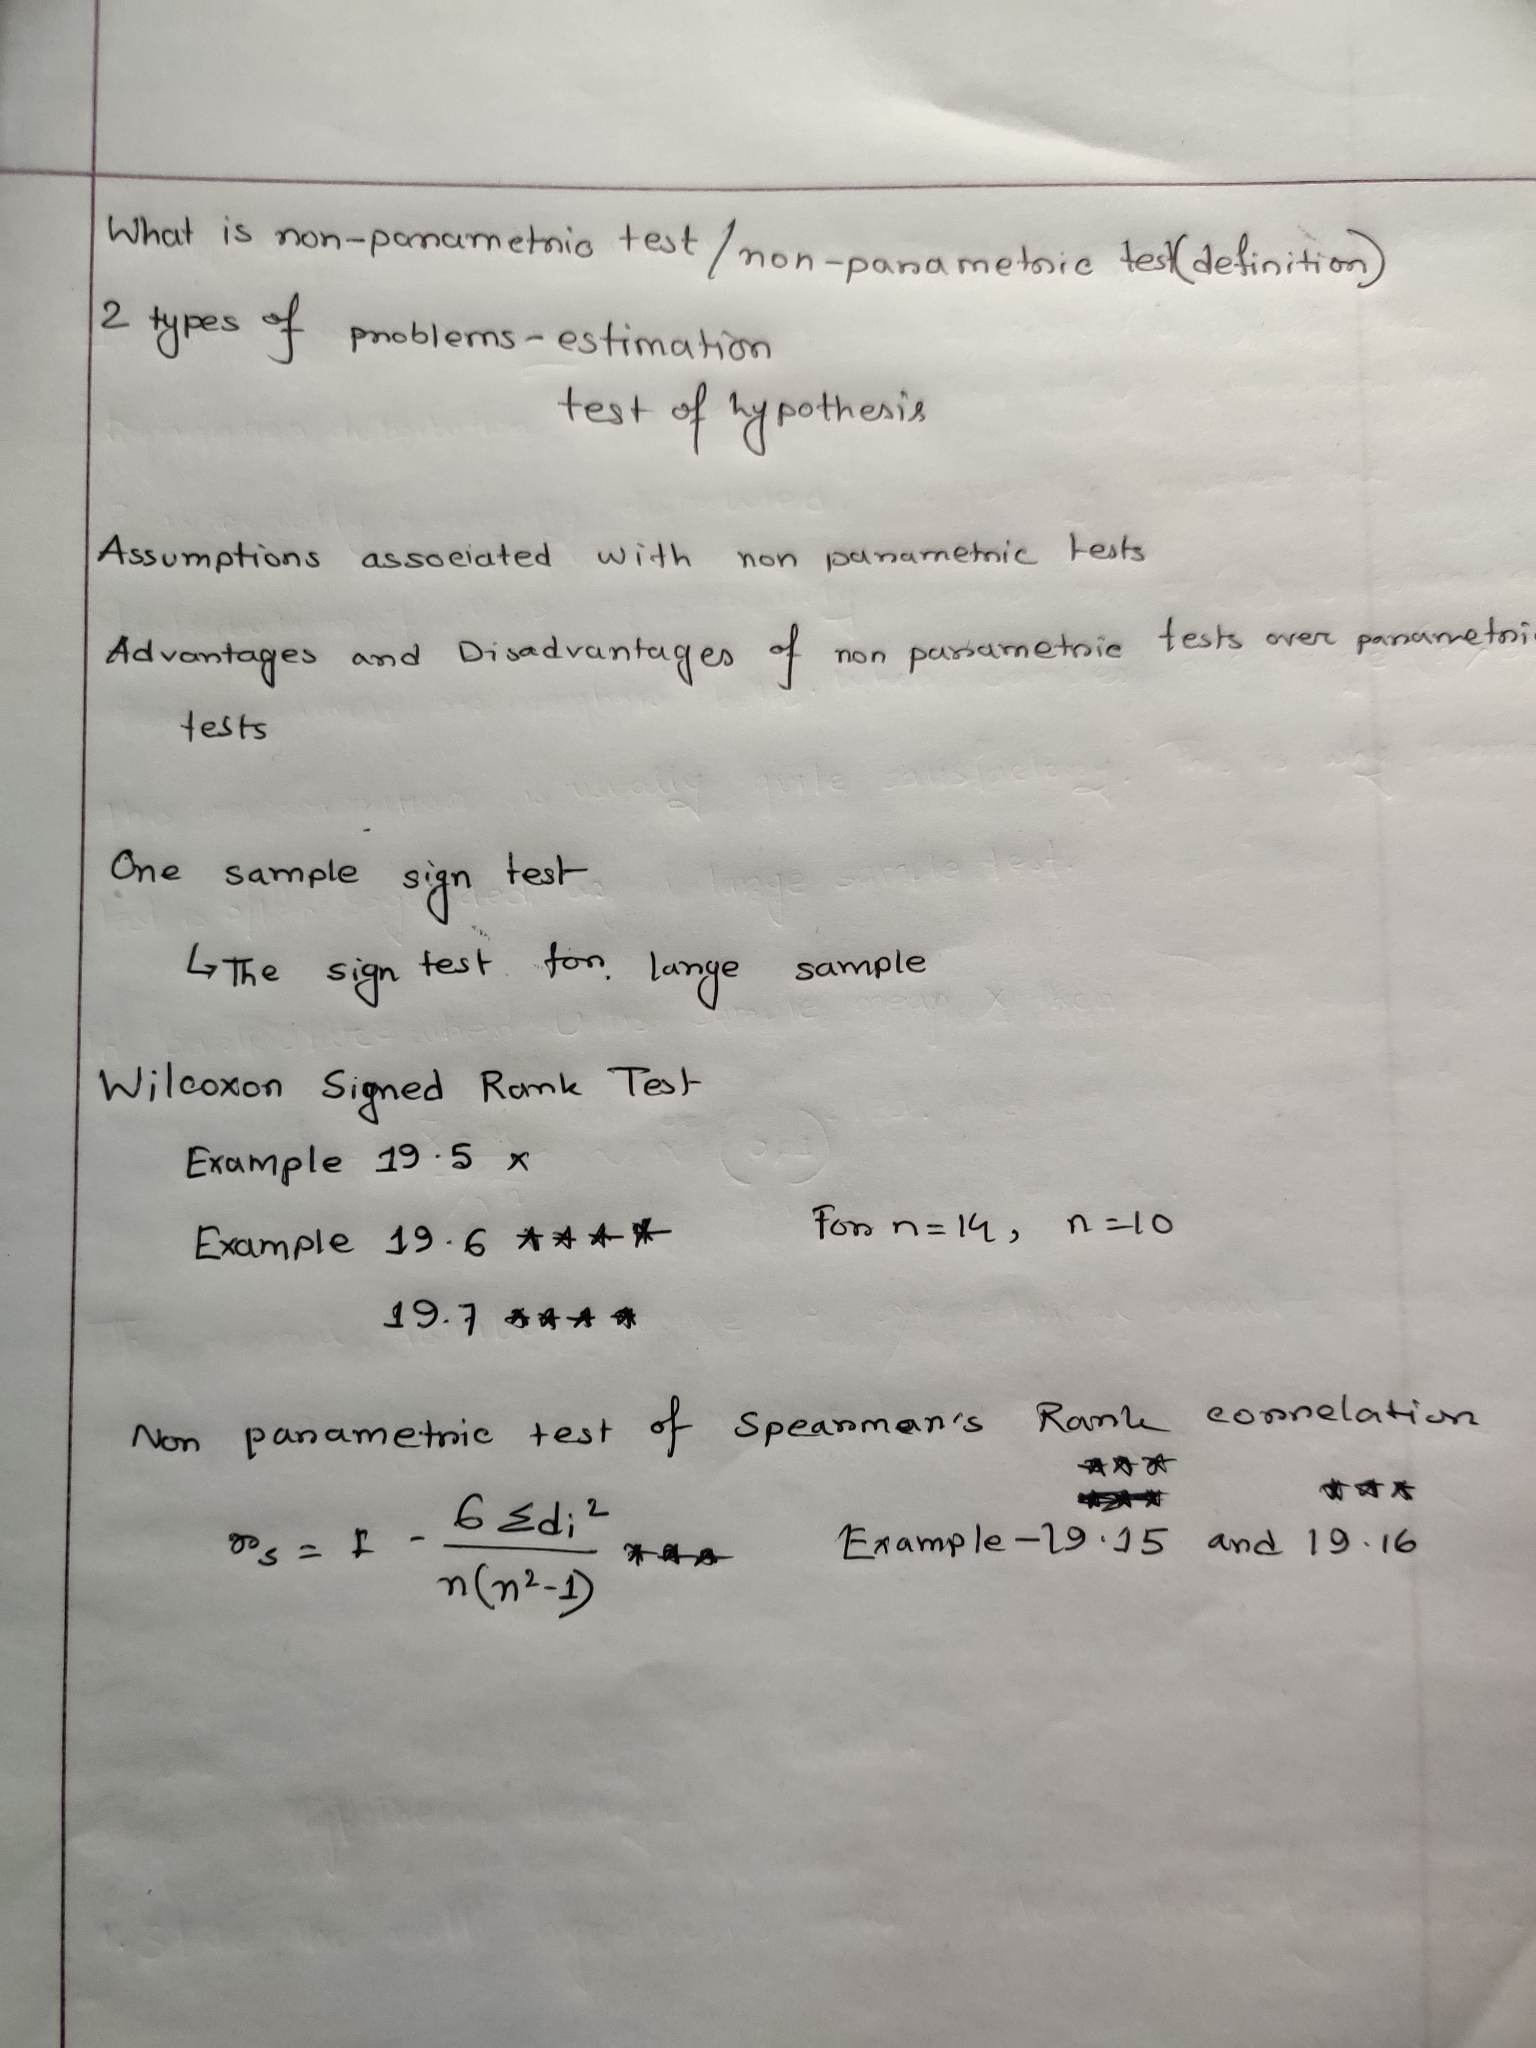 What is non-parametric test / non-parametric test (definition)
2 types of problems - estimation
test of hypothesis
Assumptions associated with non parametric tests
Advantages and Disadvantages of non parametric tests over parametric
tests
One sample sign test
↳ The sign test for large sample
Wilcoxon Signed Rank Test
Example 19.5 x
Example 19.6 **** For n = 14, n = 10
19.7 ****
Non parametric test of Spearman's Rank correlation
r_s = 1 - 6 Σdi² / n(n²-1) *** Example - 19.15 *** and 19.16 ***